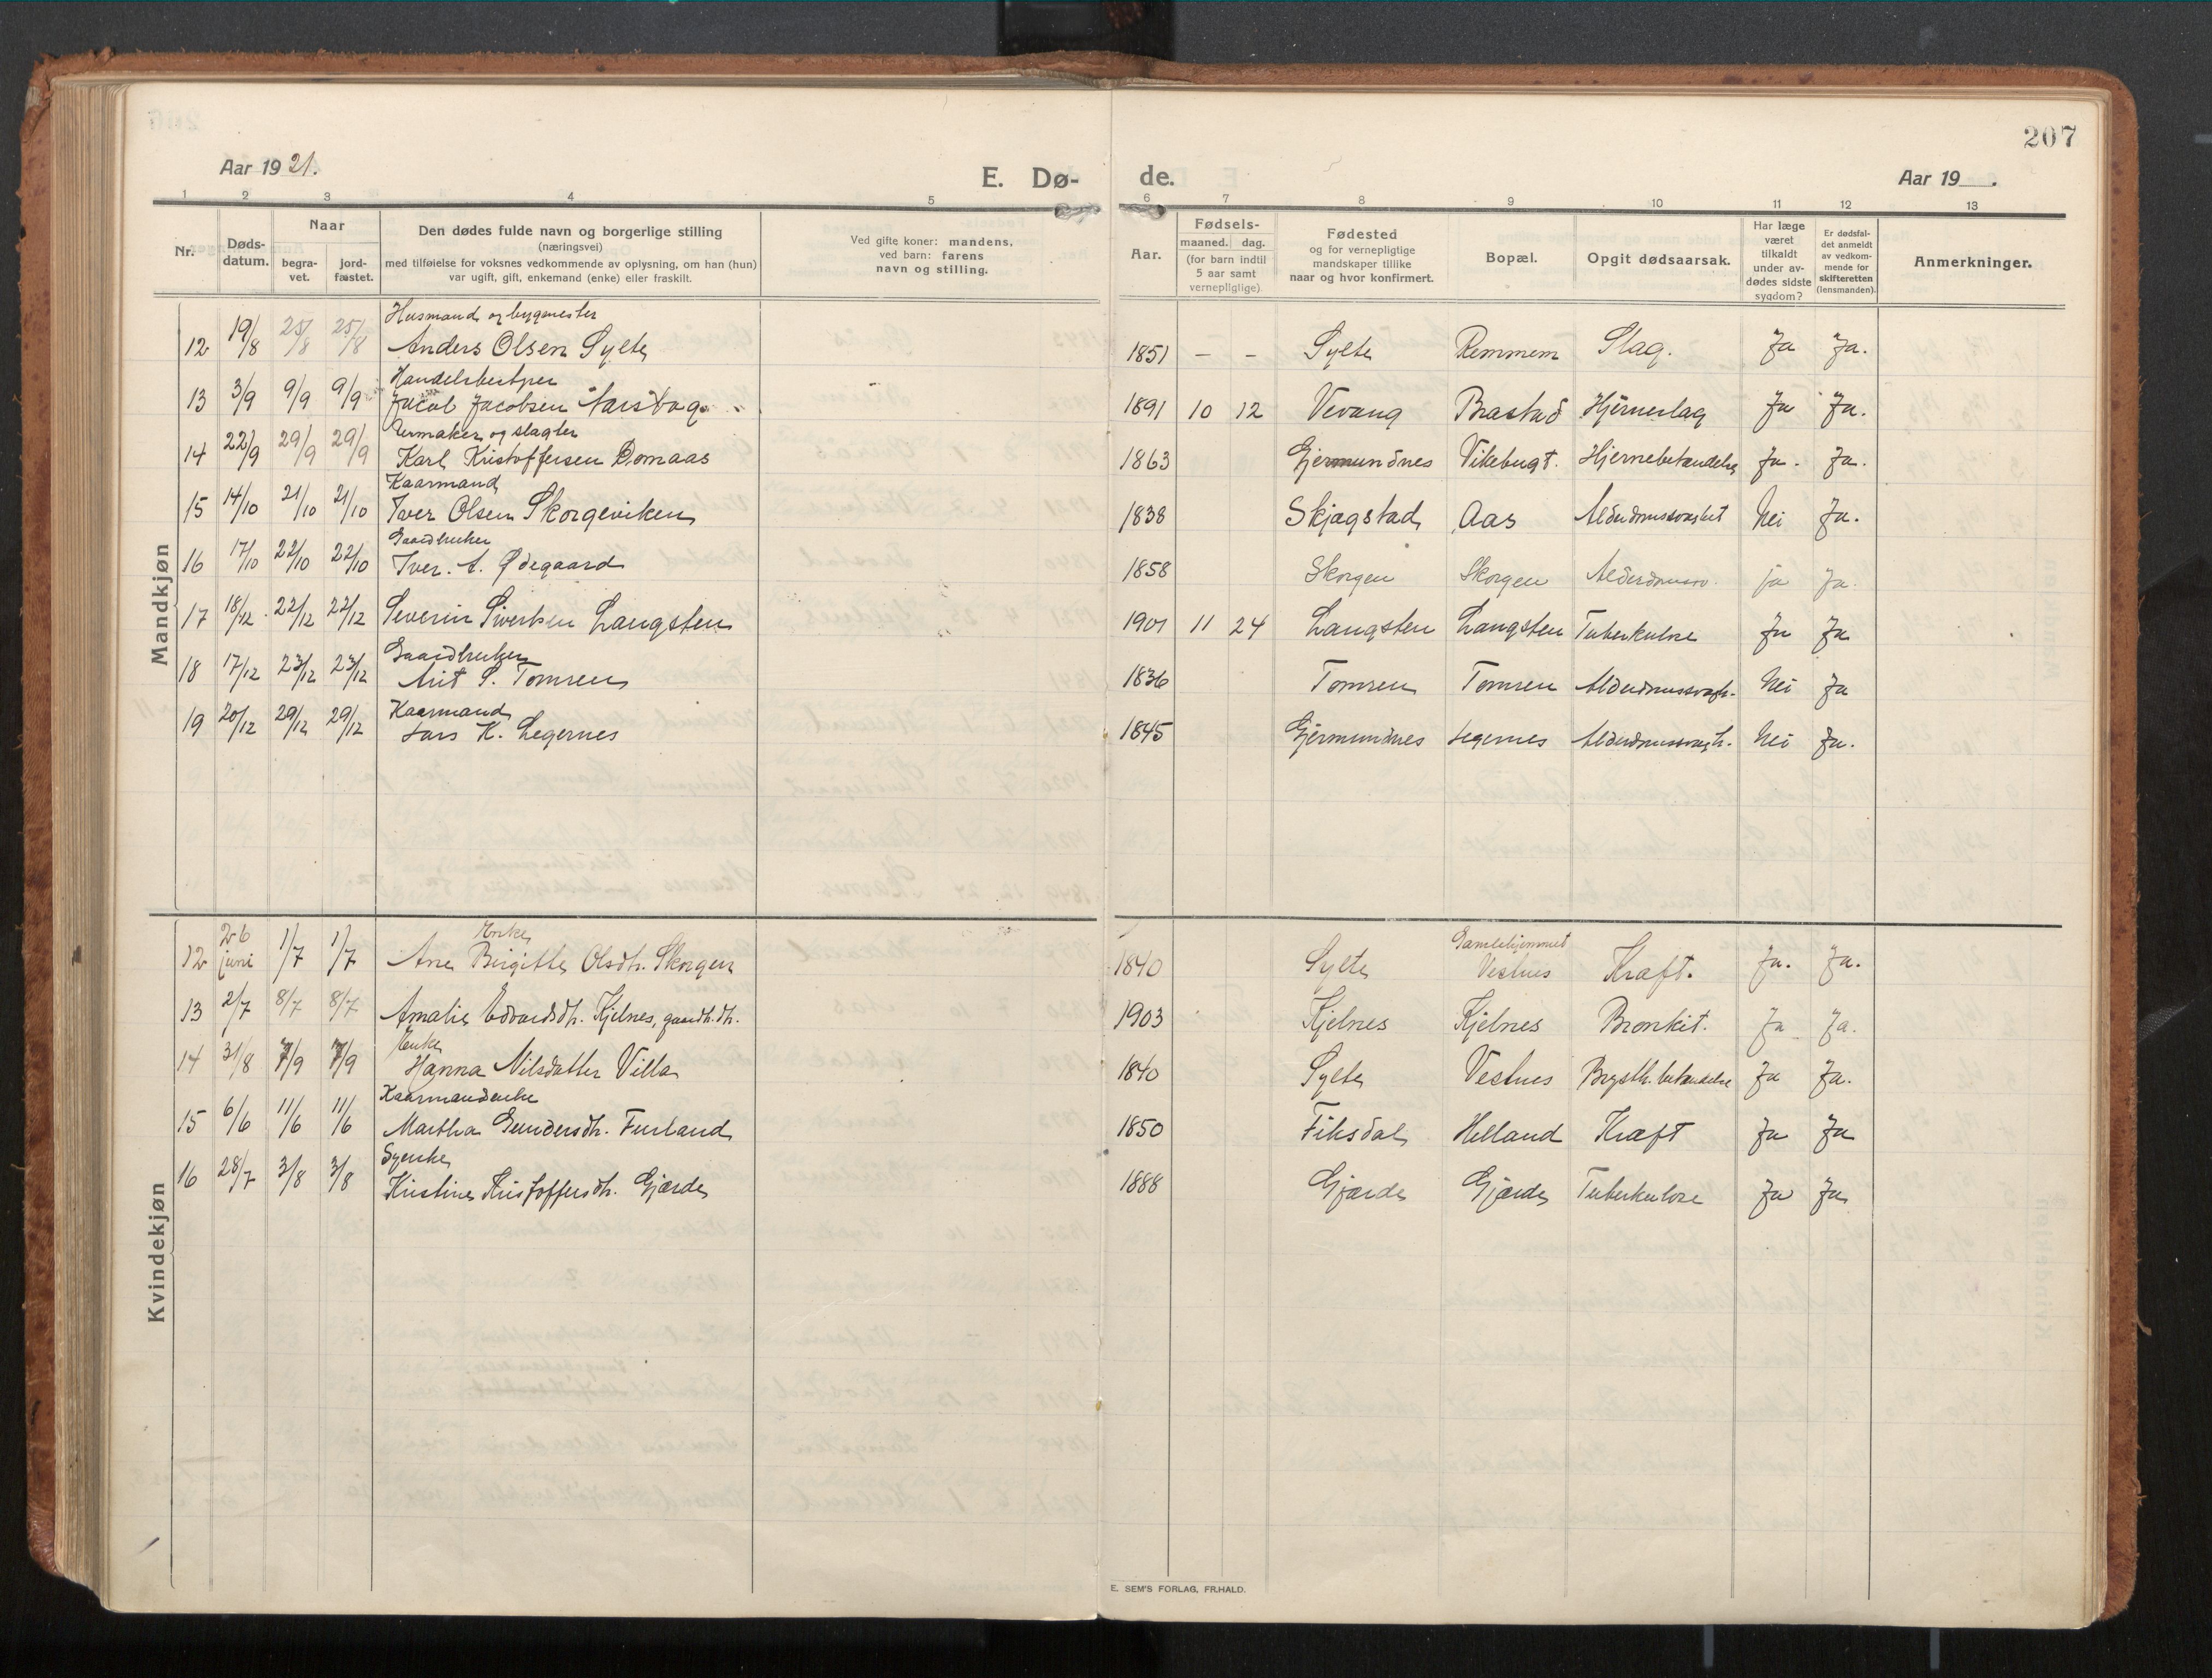 207
Aar 1921.
E. Dø-
de.
Aar 19 .
1 2 3 4 5 6 7 8 9 10 11 12 13
Nr.
Døds-
datum.
Naar
begra-
vet.
jord-
fæstet.
Den dødes fulde navn og borgerlige stilling
(næringsvei)
med tilføielse for voksnes vedkommende av oplysning, om han (hun)
var ugift, gift, enkemand (enke) eller fraskilt.
Ved gifte koner: mandens,
ved barn: farens
navn og stilling.
Aar.
Fødsels-
maaned. dag.
(for barn indtil
5 aar samt
vernepligtige)
Fødested
og for vernepligtige
mandskaper tillike
naar og hvor konfirmert.
Bopæl.
Opgit dødsaarsak.
Har læge
været
tilkaldt
under av-
dødes sidste
sygdom?
Er dødsfal-
det anmeldt
av vedkom-
mende for
skifteretten
(lensmanden).
Anmerkninger.
Mandkjøn
Husmand og bygmester
12 19/8 25/8 25/8 Anders Olsen Sylte 1851 – – Sylte Remmem Slag. Ja Ja.
Handelsbestyrer
13 3/9 9/9 9/9 Jacob Jacobsen Aarsbog. 1891 10 12 Vevang Brastad Hjerneslag Ja Ja.
Urmaker og slagter
14 22/9 29/9 29/9 Karl Kristoffersen Domaas 1863 Gjermundnes Vikebugt. Hjernebetændelse Ja. Ja.
Kaarmand
15 14/10 21/10 21/10 Iver Olsen Skorgeviken 1838 Skjægstad Aas Alderdomssvakhet Nei Ja.
Gaardbruker
16 17/10 22/10 22/10 Iver. A. Ødegaard 1858 Skorgen Skorgen Alderdomssv. ja Ja.
17 18/12 22/12 22/12 Severin Sivertsen Langsten 1901 11 24 Langsten Langsten Tuberkulose Ja Ja
Gaardbruker
18 17/12 23/12 23/12 Arit S. Tomren 1836 Tomren Tomren Alderdomssvagh. Nei Ja
Kaarmand
19 20/12 29/12 29/12 Lars K. Legernes 1845 Gjermundnes Legernes Alderdomssvagh. Nei Ja.
Kvindekjøn
Enke Gamlehjemmet
12 26 juni 1/7 1/7 Ane Birgitte Olsdtr. Skorgen 1840 Sylte Vestnes Kræft. Ja. Ja.
13 2/7 8/7 8/7 Amalie Edvardsdtr. Kjelnes, gaardb. dtr. 1903 Kjelnes Kjelnes Bronkit. Ja Ja.
Enke
14 31/8 7/9 7/9 Hanna Nilsdatter Villa 1840 Sylte Vestnes Brysth. betændelse Ja Ja.
Kaarmandenke
15 6/6 11/6 11/6 Martha Gundersdtr. Furland 1850 Fiksdal Helland Kræft Ja Ja
Syerske
16 28/7 3/8 3/8 Kristine Kristoffersdtr. Gjærde 1888 Gjærde Gjærde Tuberkulose Ja Ja
E. SEM'S FORLAG, FR.HALD.